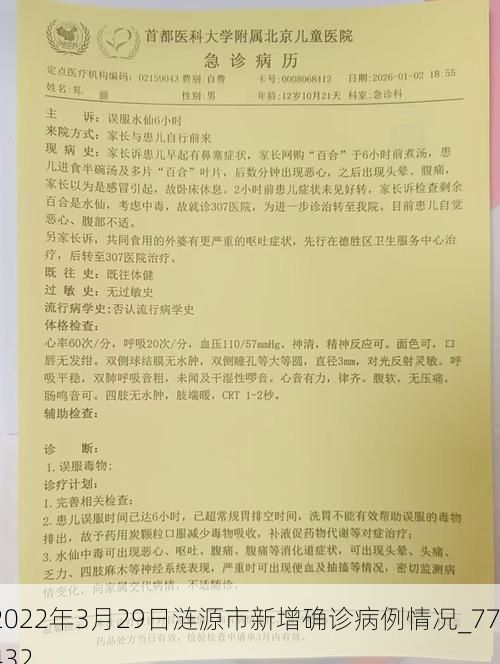 首都医科大学附属北京儿童医院
急诊病历
定点医疗机构编码：02159043 费别：自费 卡号：0008068412 日期：2026-01-02 18:55
姓名：郑 性别：男 年龄：12岁10月21天 科室：急诊科
主诉：误服水仙6小时
来院方式：家长与患儿自行前来
现病史：家长诉患儿早起有鼻塞症状，家长网购“百合”于6小时前煮汤，患
儿进食半碗汤及多片“百合”叶片，后数分钟出现恶心，之后出现头晕、腹痛，
家长以为是感冒引起，故卧床休息。2小时前患儿症状未见好转，家长诉检查剩余
百合是水仙，考虑中毒，故就诊307医院，为进一步诊治转至我院。目前患儿自觉
恶心、腹部不适。
另家长诉，共同食用的外婆有更严重的呕吐症状，先行在德胜区卫生服务中心治
疗，后转至307医院治疗。
既往史：既往体健
过敏史：无过敏史
流行病学史：否认流行病学史
体格检查：
心率60次/分，呼吸20次/分，血压110/57mmHg。神清，精神反应可。面色可。口
唇无发绀。双侧球结膜无水肿，双侧瞳孔等大等圆，直径3mm，对光反射灵敏。呼
吸平稳，双肺呼吸音粗，未闻及干湿性啰音。心音有力，律齐。腹软，无压痛，
肠鸣音可。四肢无水肿，肢端暖，CRT 1-2秒。
辅助检查：
诊断：
1.误服毒物；
诊疗计划：
1.完善相关检查；
2.患儿误服时间已达6小时，已超常规胃排空时间，洗胃不能有效帮助误服的毒物
排出，故予药用炭颗粒口服减少毒物吸收，补液促药物代谢等对症治疗；
3.水仙中毒可出现恶心、呕吐、腹痛、腹痛等消化道症状，可出现头晕、头痛、
乏力、四肢麻木等神经系统表现，严重时可出现便血及抽搐等情况，密切监测病
情变化，向家属交代病情，不适随诊。
2022年3月29日涟源市新增确诊病例情况_77
432